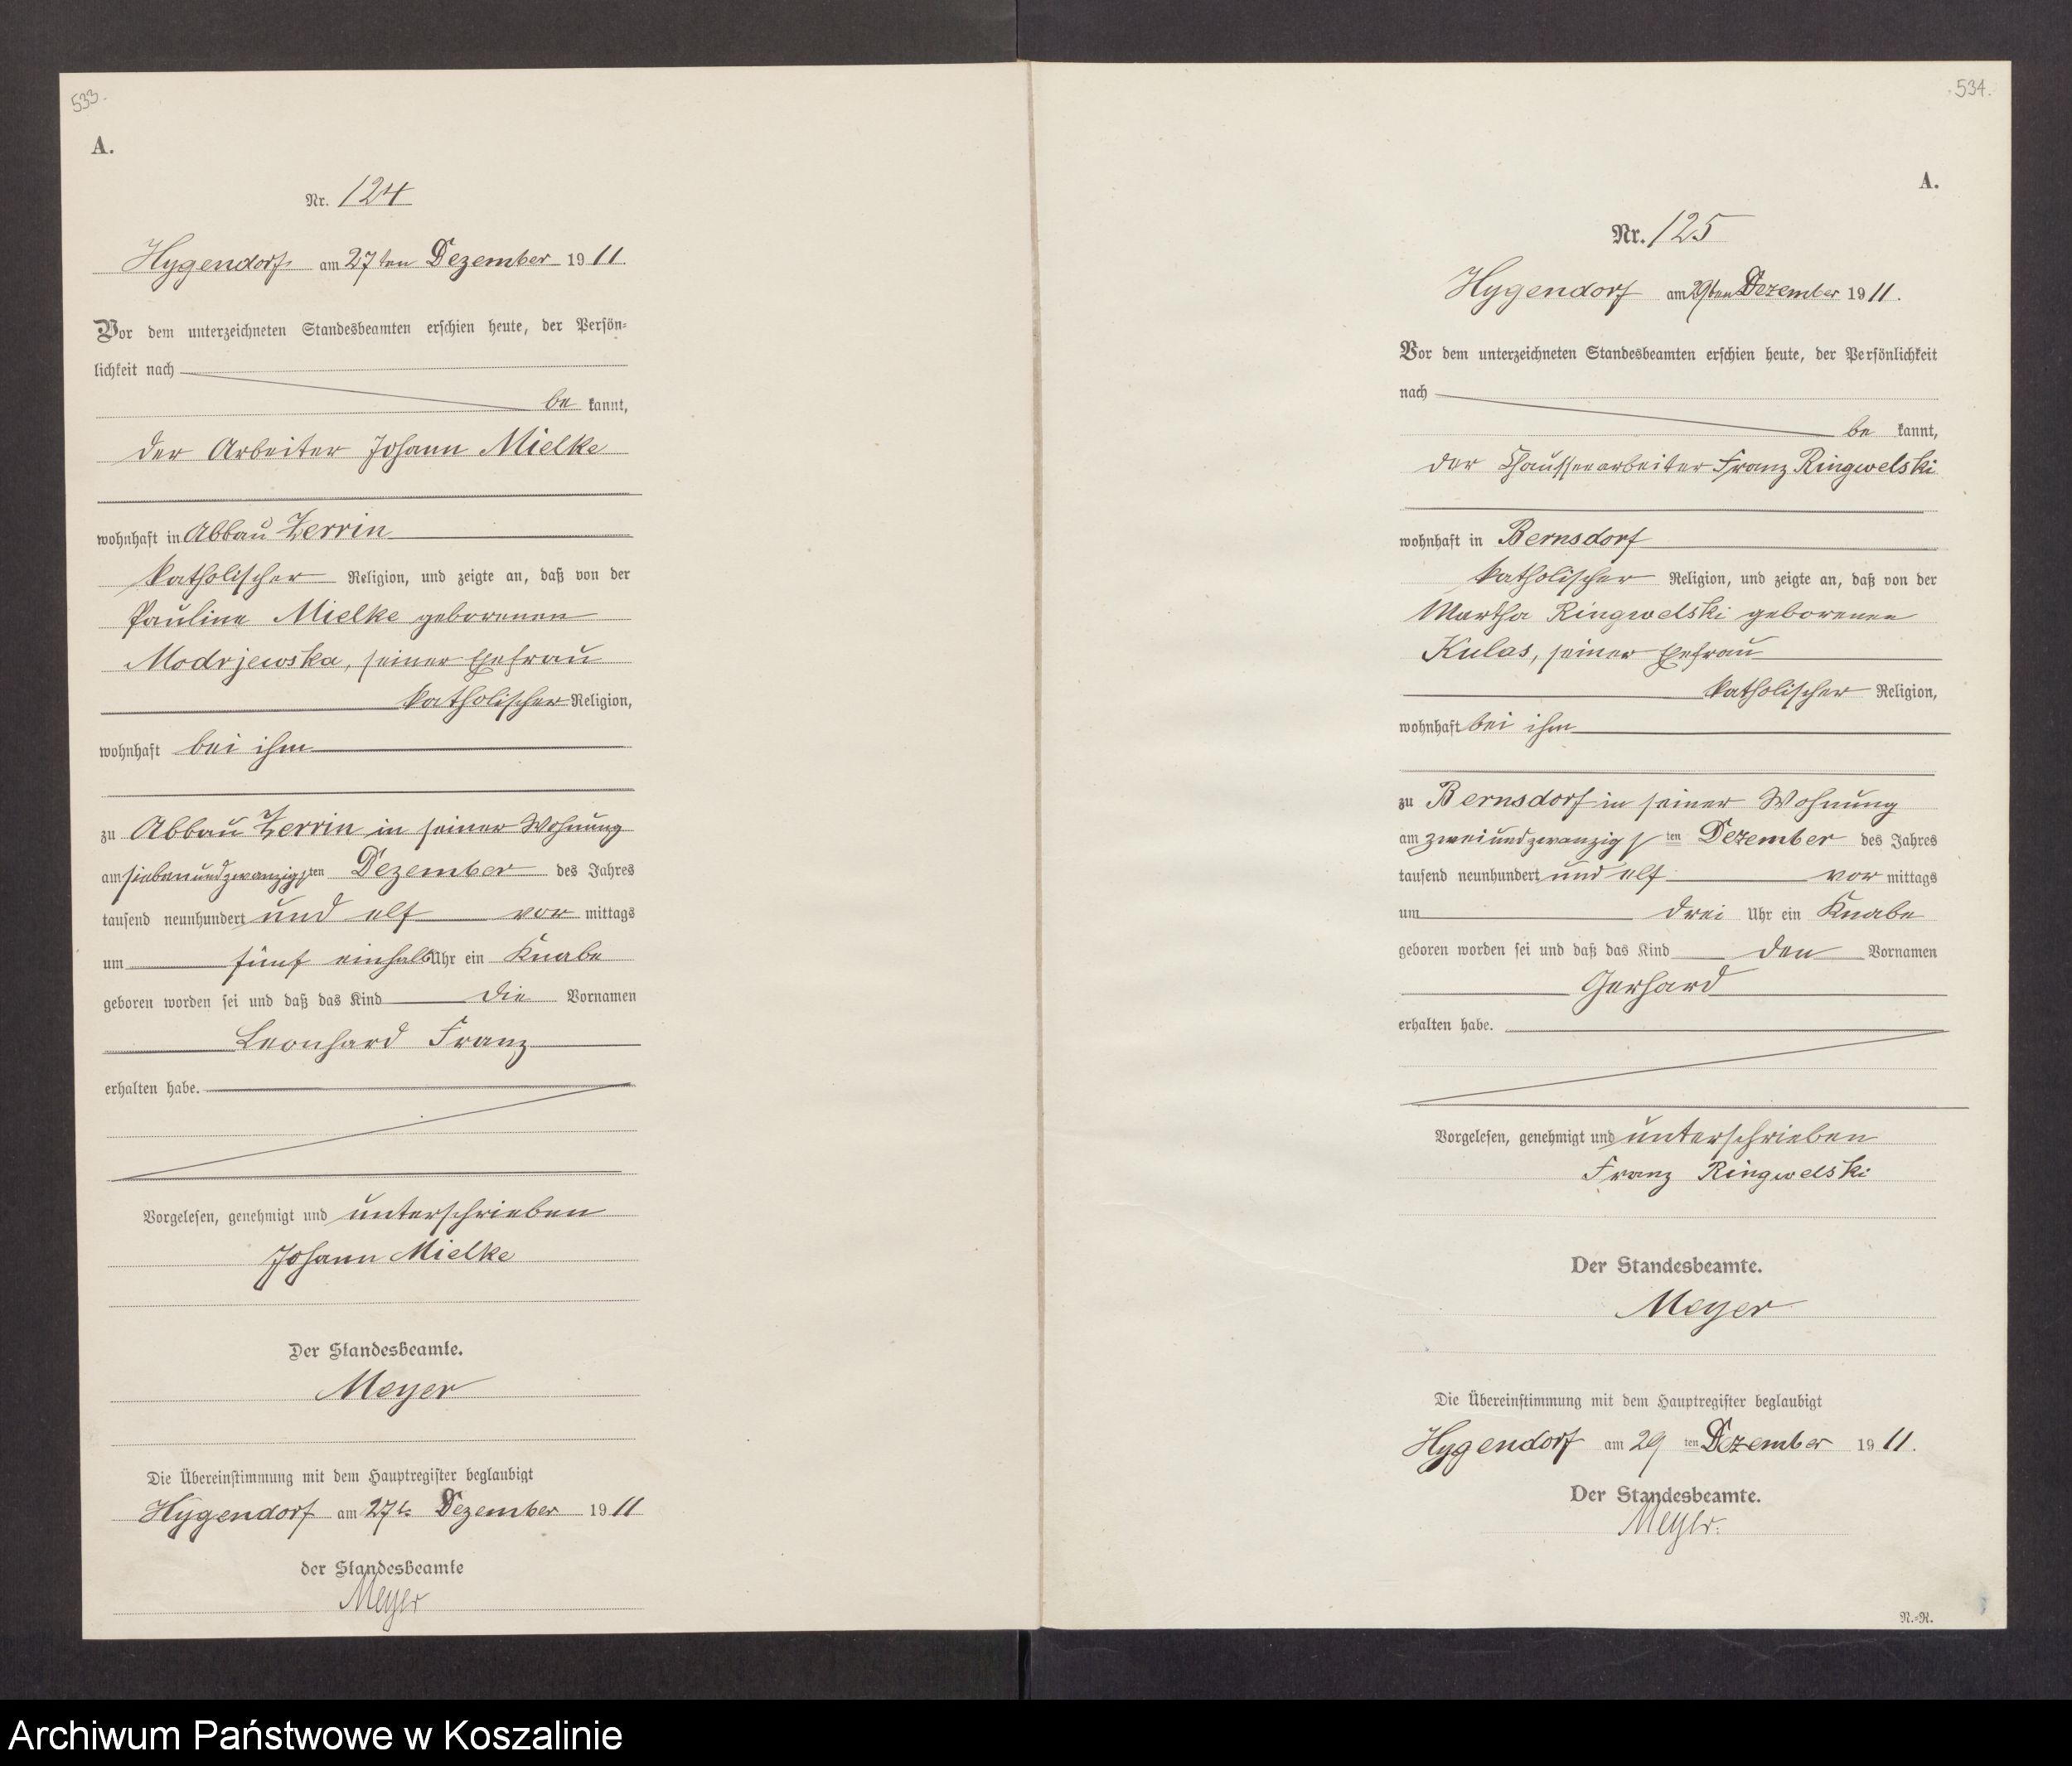 533.
A.
Nr. 124
Hygendorf am 27ten Dezember 1911
Vor dem unterzeichneten Standesbeamten erschien heute, der Persön-
lichkeit nach
be kannt,
der Arbeiter Johann Mielke
wohnhaft in Abbau Zerrin
katholischer Religion, und zeigte an, daß von der
Pauline Mielke geborenen
Modrjewska, seiner Ehefrau
katholischer Religion,
wohnhaft bei ihm
zu Abbau Zerrin in seiner Wohnung
am siebenundzwanzigsten Dezember des Jahres
tausend neunhundert und elf vor mittags
um fünf einhalb Uhr ein Knabe
geboren worden sei und daß das Kind die Vornamen
Leonhard Franz
erhalten habe.
Vorgelesen, genehmigt und unterschrieben
Johann Mielke
Der Standesbeamte.
Meyer
Die Übereinstimmung mit dem Hauptregister beglaubigt
Hygendorf am 27t. Dezember 1911
der Standesbeamte
Meyer
534.
A.
Nr. 125
Hygendorf am 29ten Dezember 1911.
Vor dem unterzeichneten Standesbeamten erschien heute, der Persönlichkeit
nach
be kannt,
der Chausseearbeiter Franz Ringwelski
wohnhaft in Bernsdorf
katholischer Religion, und zeigte an, daß von der
Martha Ringwelski geborenen
Kulas, seiner Ehefrau
katholischer Religion,
wohnhaft bei ihm
zu Bernsdorf in seiner Wohnung
am zweiundzwanzigs ten Dezember des Jahres
tausend neunhundert und elf vor mittags
um drei Uhr ein Knabe
geboren worden sei und daß das Kind den Vornamen
Gerhard
erhalten habe.
Vorgelesen, genehmigt und unterschrieben
Franz Ringwelski
Der Standesbeamte.
Meyer
Die Übereinstimmung mit dem Hauptregister beglaubigt
Hygendorf am 29 ten Dezember 1911.
Der Standesbeamte.
Meyer.
N.=R.
Archiwum Państwowe w Koszalinie